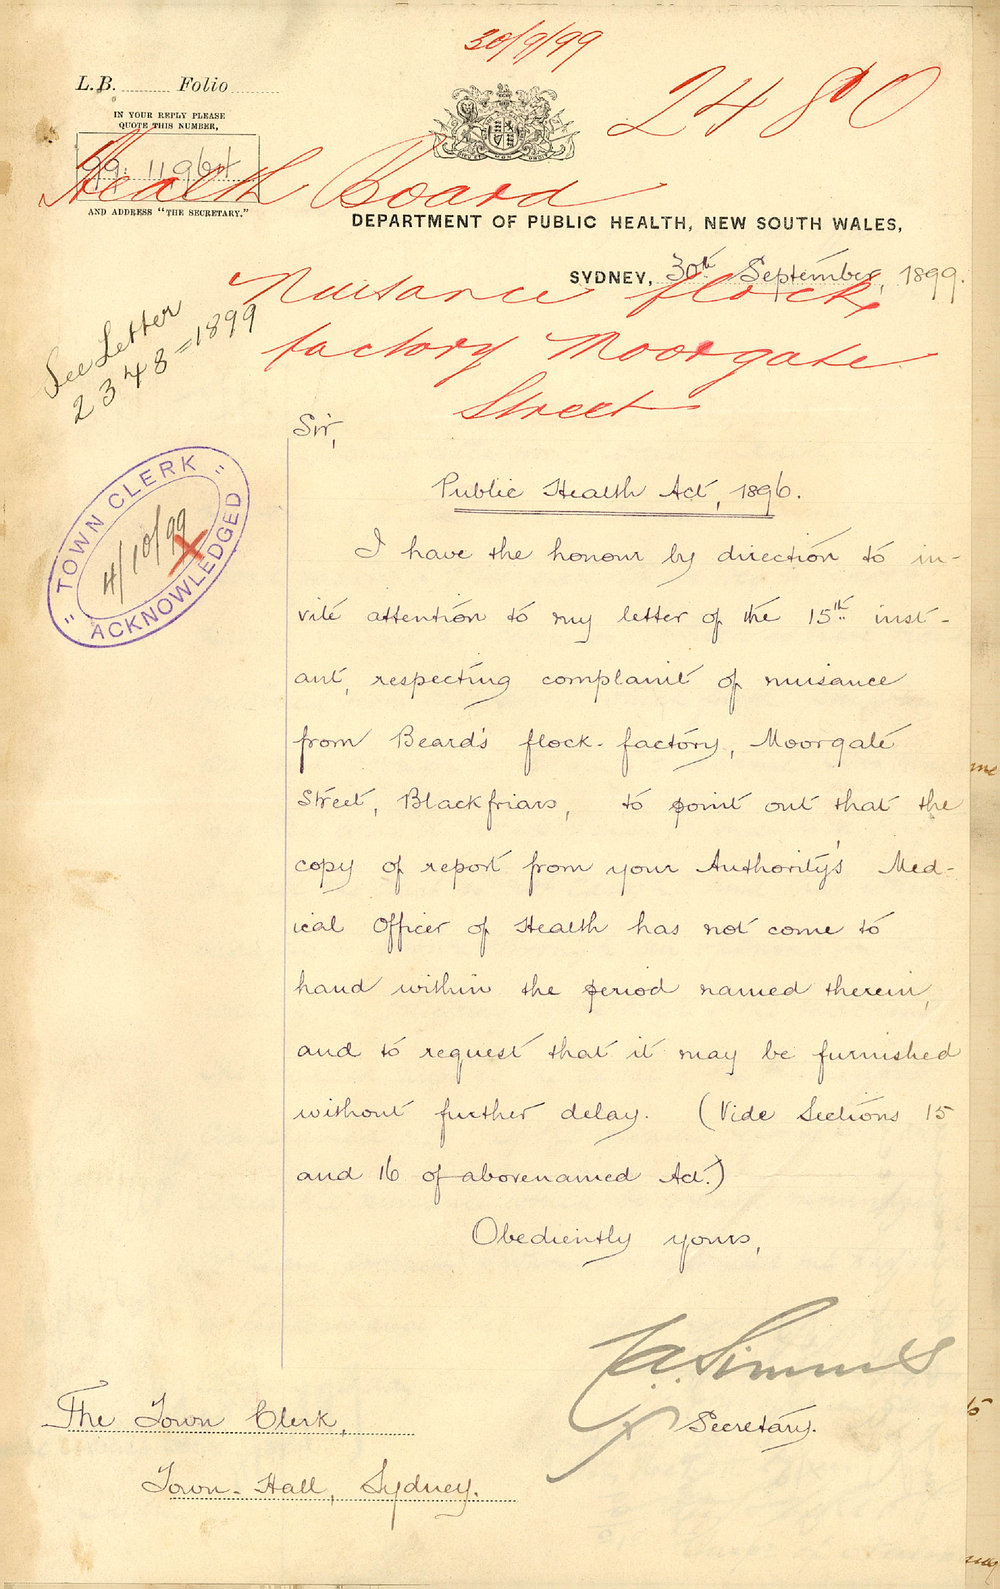 30/9/99
2480
L.B. Folio
IN YOUR REPLY PLEASE
QUOTE THIS NUMBER,
99. 11964
AND ADDRESS "THE SECRETARY."
Health Board
DEPARTMENT OF PUBLIC HEALTH, NEW SOUTH WALES,
SYDNEY, 30th September, 1899.
Nuisance flock
factory Moorgate
Street
See Letter
2348=1899
"TOWN CLERK"
4/10/99
ACKNOWLEDGED
Sir,
Public Health Act, 1896.
I have the honour by direction to in-
vite attention to my letter of the 15th inst-
ant, respecting complaint of nuisance
from Beard's flock-factory, Moorgate
Street, Blackfriars, to point out that the
copy of report from your Authority's Med-
ical Officer of Health has not come to
hand within the period named therein,
and to request that it may be furnished
without further delay. (Vide Sections 15
and 16 of abovenamed Act.)
Obediently yours,
Simms
Secretary.
The Town Clerk,
Town-Hall, Sydney.